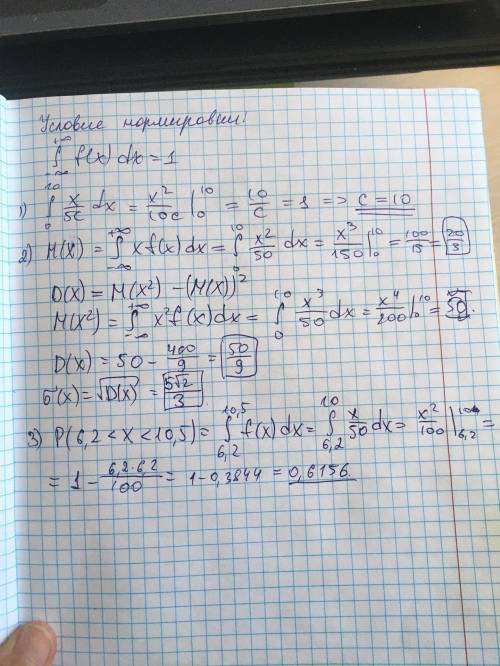 Условие нормировки:
∫_{-∞}^{+∞} f(x) dx = 1
1) ∫_0^{10} x/5c dx = x²/10c |_0^{10} = 10/c = 1 => c = 10
2) M(X) = ∫_{-∞}^{+∞} x f(x) dx = ∫_0^{10} x²/50 dx = x³/150 |_0^{10} = 100/15 = 20/3
D(X) = M(X²) - (M(X))²
M(X²) = ∫_{-∞}^{+∞} x² f(x) dx = ∫_0^{10} x³/50 dx = x⁴/200 |_0^{10} = 50.
D(X) = 50 - 400/9 = 50/9
σ(x) = √D(X) = 5√2/3.
3) P(6,2 < X < 10,5) = ∫_{6,2}^{10,5} f(x) dx = ∫_{6,2}^{10} x/50 dx = x²/100 |_{6,2}^{10} =
= 1 - 6,2·6,2/100 = 1 - 0,3844 = 0,6156